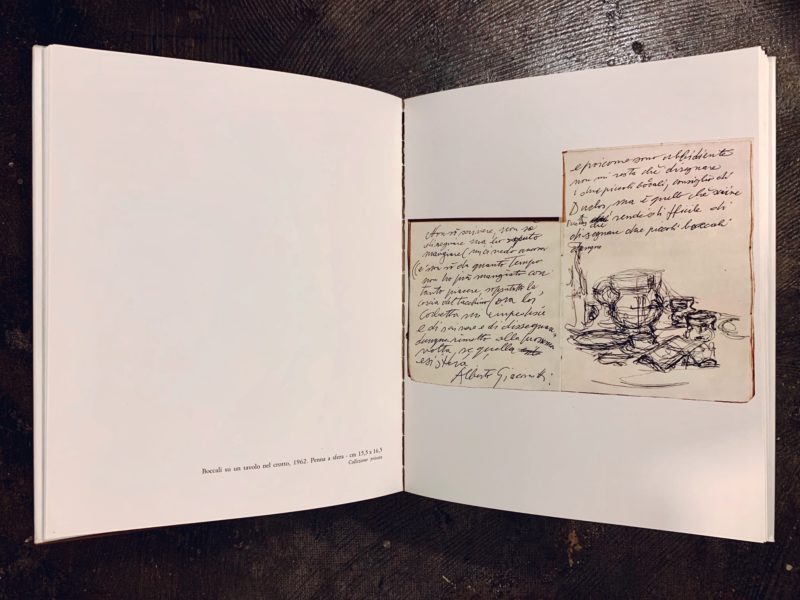 Boccali su un tavolo nel crotto, 1962. Penna a sfera - cm 15,5 x 16,5
Collezione privata
Non so scrivere, non so
disegnare ma ho saputo
mangiare (
non so da quanto tempo
non ho più mangiato con
tanto piacere, soprattutto la
coscia del tacchino) ora lor
mi impedisce
e di scrivere e di dissegnare,
dunque rimetto alla prossima
volta, se quella
esistera
Alberto Giacometti:
e poi come sono ubbidiente
non mi resta che disegnare
i due piccoli boccali, consiglio di
Duclos, ma è quello che
rende difficile di
disegnare due piccoli boccali